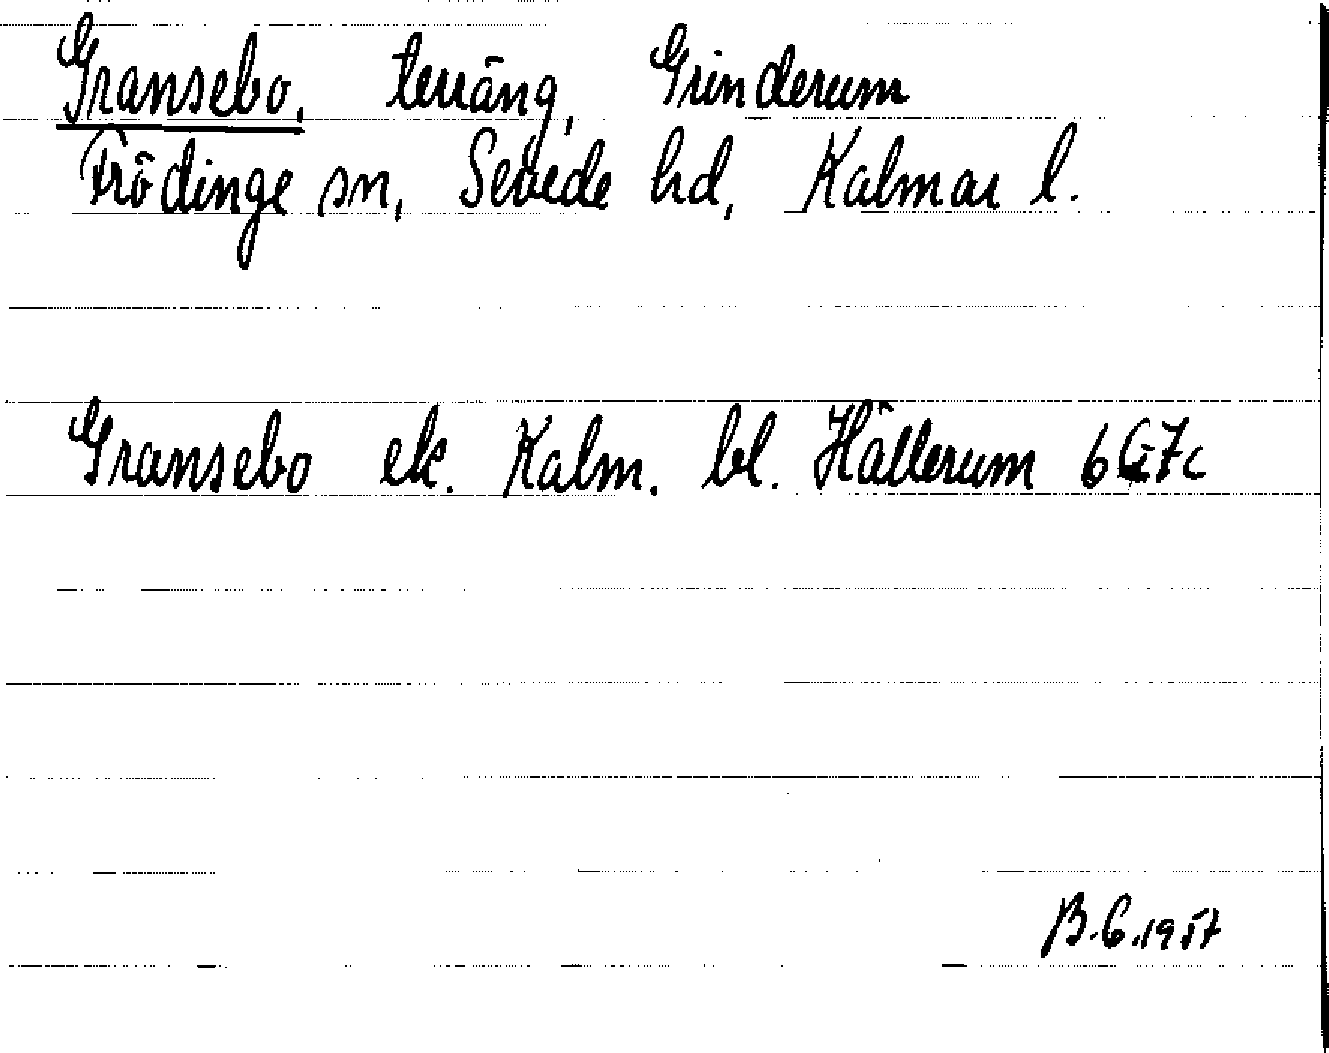 Gransebo, terräng, Grinderum
Frödinge sn, Sevede hd, Kalmar l.
Gransebo ek. Kalm. bl. Hällerum 6G7c
B.G.1957